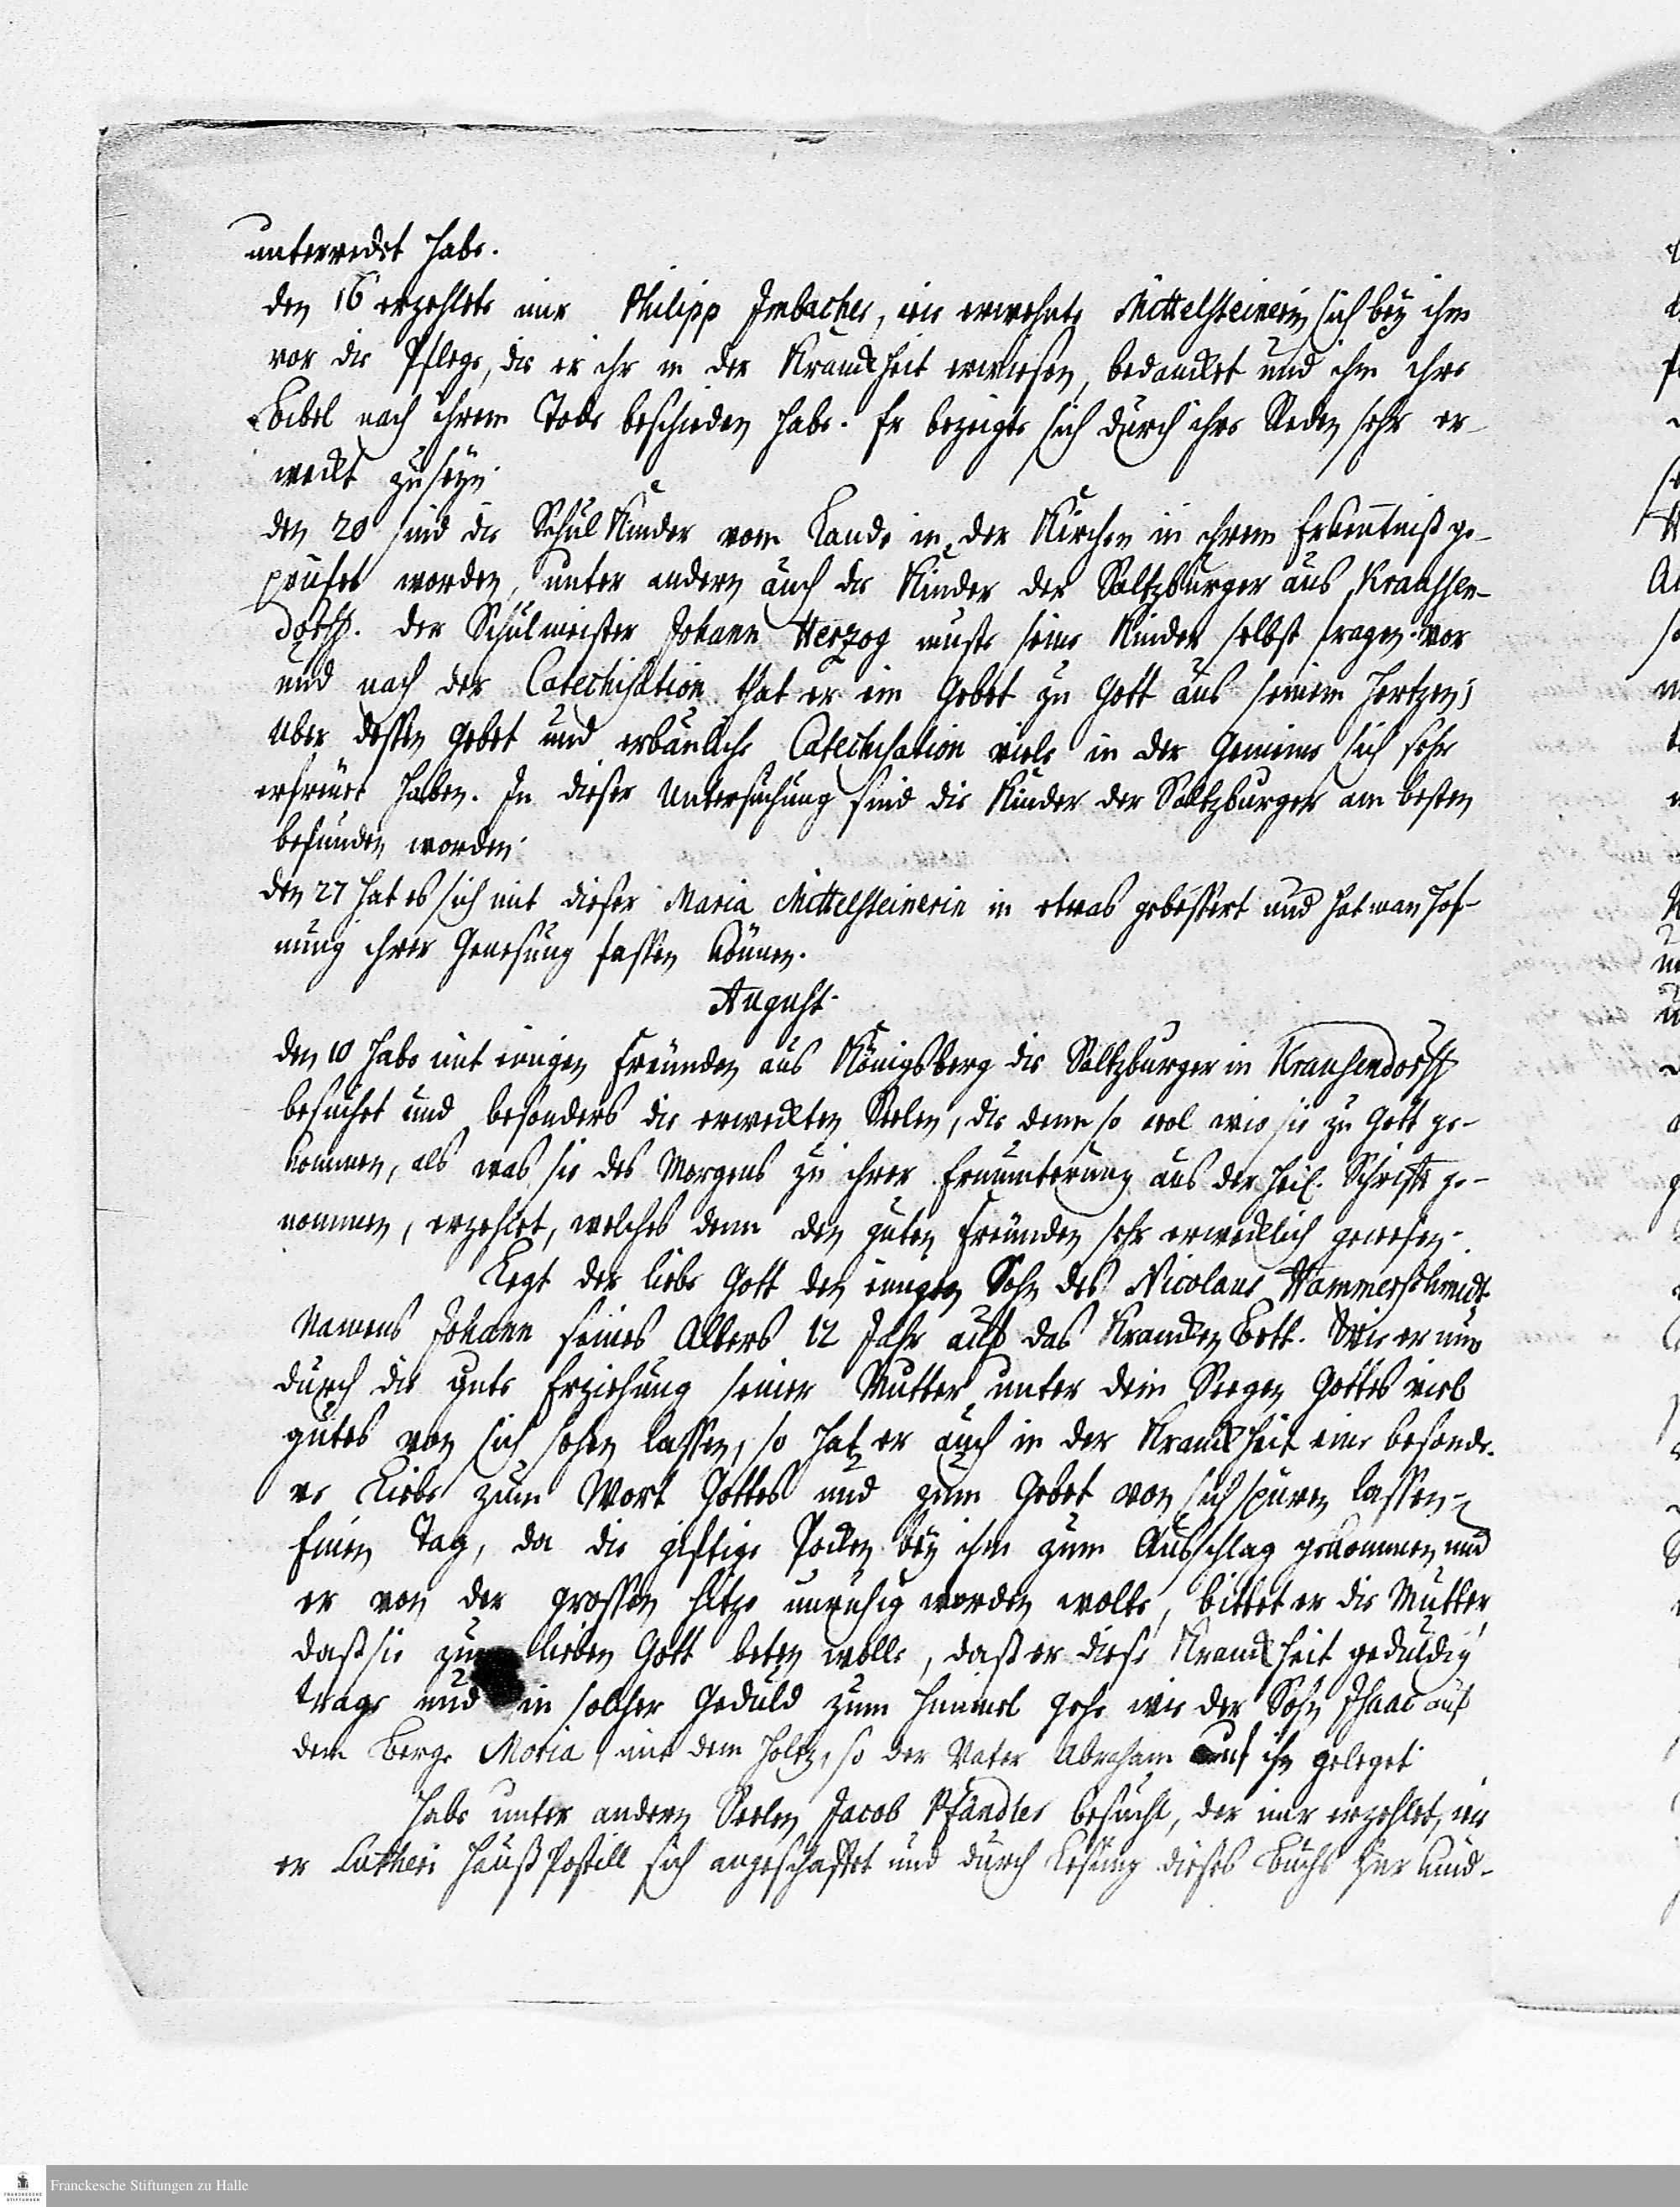 unterredet habe.
den 16 erzehlete mir Philipp Imbacher, wie erwehnte Mittelsteinerin sich bey ihm
vor die Pflege, die er ihr in der Kranckheit erwiesen, bedancket und ihm ihre
Bibel nach ihrem Tode beschieden habe. Er bezeigte sich durch ihre Reden sehr er-
weckt zu seyn.
den 20 sind die Schul Kinder vom Lande in der Kirchen in ihrem Erkentniß ge-
prüfet worden, unter andern auch die Kinder der Saltzburger aus Krausen-
dorff. der Schulmeister Johann Herzog muste seine Kinder selbst fragen. Vor
und nach der Catechisation that er ein Gebet zu Gott aus seinem Hertzen;
Uber dessen Gebet und erbauliche Catechisation viele in der Gemeine sich sehr
erfreuet haben. In dieser Untersuchung sind die Kinder der Saltzburger am besten
befunden worden.
den 27 hat es sich mit dieser Maria Mittelsteinerin in etwas gebessert und hat man Hof-
nung ihrer Genesung fassen können.
August.
den 10 habe mit einigen Freunden aus Königsberg die Saltzburger in Krausendorff
besuchet und besonders die erweckten Seelen, die denn so wol wie sie zu Gott ge-
kommen, als was sie des Morgens zu ihrer Ermunterung aus der Heil. Schrifft ge-
nommen, erzehlet, welches denn den guten Freunden sehr erwecklich gewesen.
Legt der liebe Gott den einigen Sohn des Nicolaus Hammerschmidt
Namens Johann seines Alters 12 Jahr auf das Krancken Bett. Wie er nun
durch die gute Erziehung seiner Mutter unter dem Seegen Gottes viel
gutes von sich sehen lassen, so hat er auch in der Kranckheit eine besonde-
re Liebe zum Wort Gottes und zum Gebet von sich spüren lassen.
Einen Tag, da die giftige Pocken bey ihm zum Ausschlag gekommen und
er von der grossen Hitze unruhig werden wolte, bittet er die Mutter,
daß sie zum lieben Gott beten wolle, daß er diese Kranckheit geduldig
trage und in solcher Geduld zum Himmel gehe wie der Sohn Isaac auf
dem Berge Moria mit dem Holtz, so der Vater Abraham auf ihn geleget.
Habe unter andern Seelen Jacob Pfändler besucht, der mir erzehlet, wie
er Lutheri Hauß Postill sich angeschaffet und durch Lesung dieses Buchs zur Kind-
Franckesche Stiftungen zu Halle